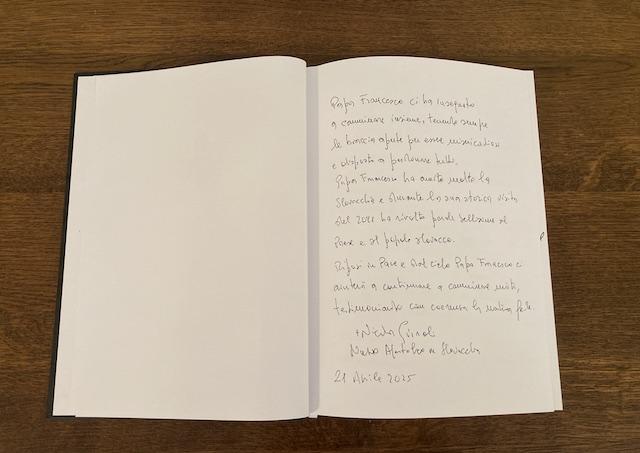 Papa Francesco ci ha insegnato
a camminare insieme, tenendo sempre
le braccia aperte per essere misericordiosi
e disposti a perdonare tutti.
Papa Francesco ha amato molto la
Slovacchia e durante la sua storica visita
del 2021 ha rivolto parole bellissime al
Paese e al popolo slovacco.
Riposi in Pace e dal cielo Papa Francesco ci
aiuterà a continuare a camminare uniti,
testimoniando con coerenza la nostra fede.
+ Nicola Girasoli
Nunzio Apostolico in Slovacchia
21 Aprile 2025